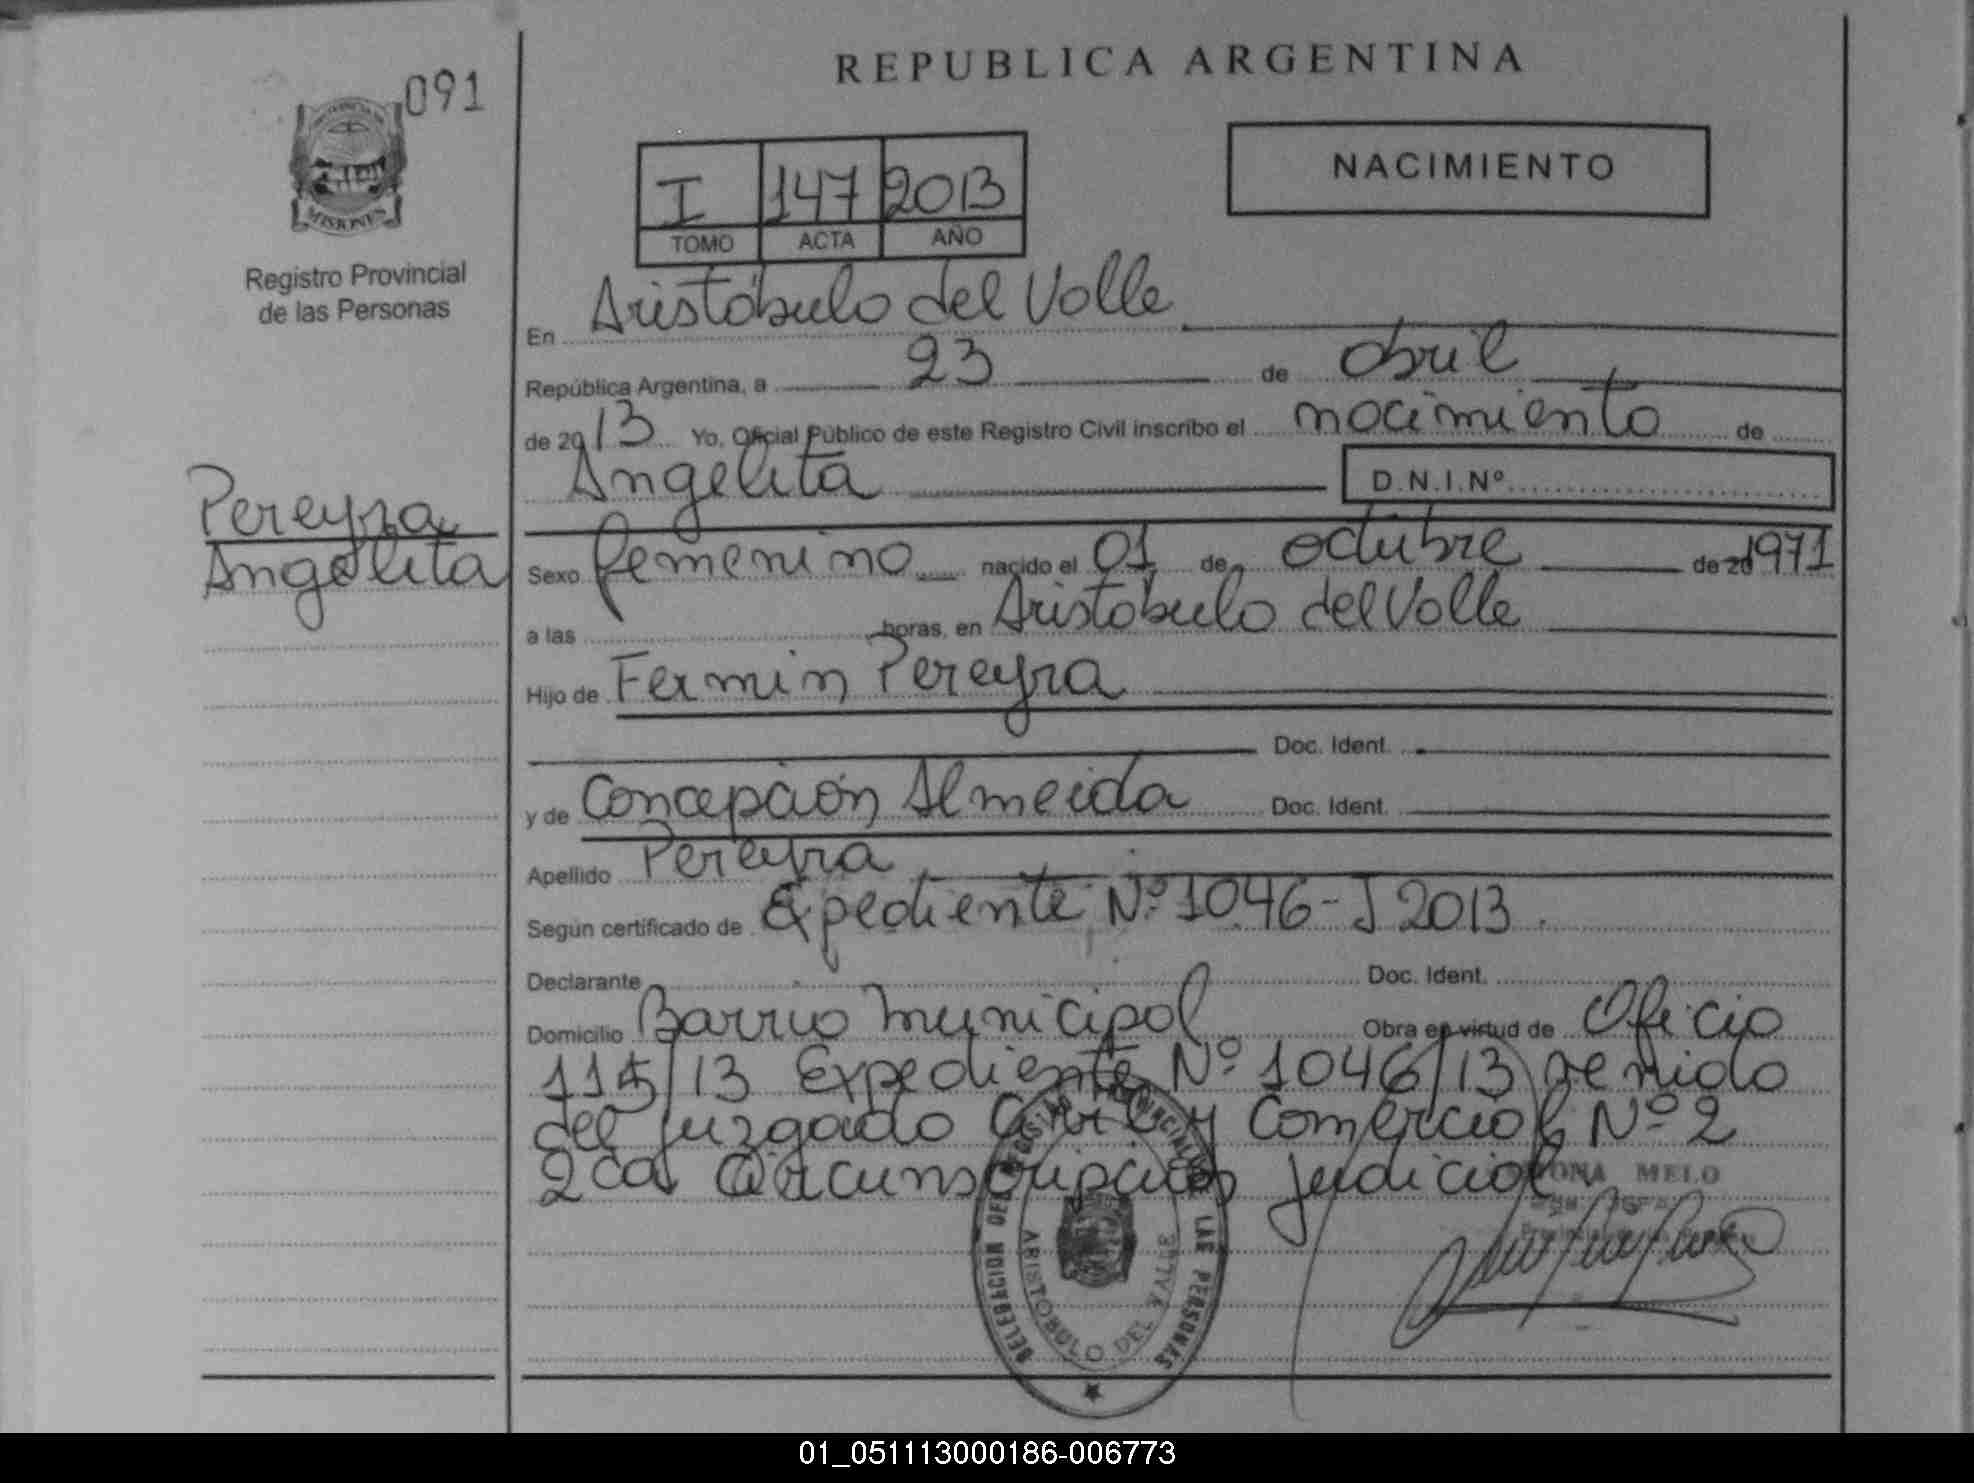 REPUBLICA ARGENTINA
091
PROVINCIA DE
MISIONES
Registro Provincial
de las Personas
NACIMIENTO
I 147 2013
TOMO ACTA AÑO
En Aristóbulo del Valle
República Argentina, a 23 de abril
de 2013 Yo, Oficial Público de este Registro Civil inscribo el nacimiento de
Angelita D.N.I.Nº
Pereyra
Angelita
Sexo femenino nacido el 01 de octubre de 20 1971
a las horas, en Aristóbulo del Valle
Hijo de Fermin Pereyra
Doc. Ident.
y de Concepción Almeida Doc. Ident.
Apellido Pereyra
Según certificado de Expediente Nº 1046-J 2013.
Declarante Doc. Ident.
Domicilio Barrio Municipal Obra en virtud de Oficio
115/13 Expediente Nº 1046/13 venido
del Juzgado Civil y Comercial Nº 2
2da Circunscripción Judicial
MELO
DELEGACION DEL REGISTRO PROVINCIAL DE LAS PERSONAS
ARISTOBULO DEL VALLE
01_051113000186-006773